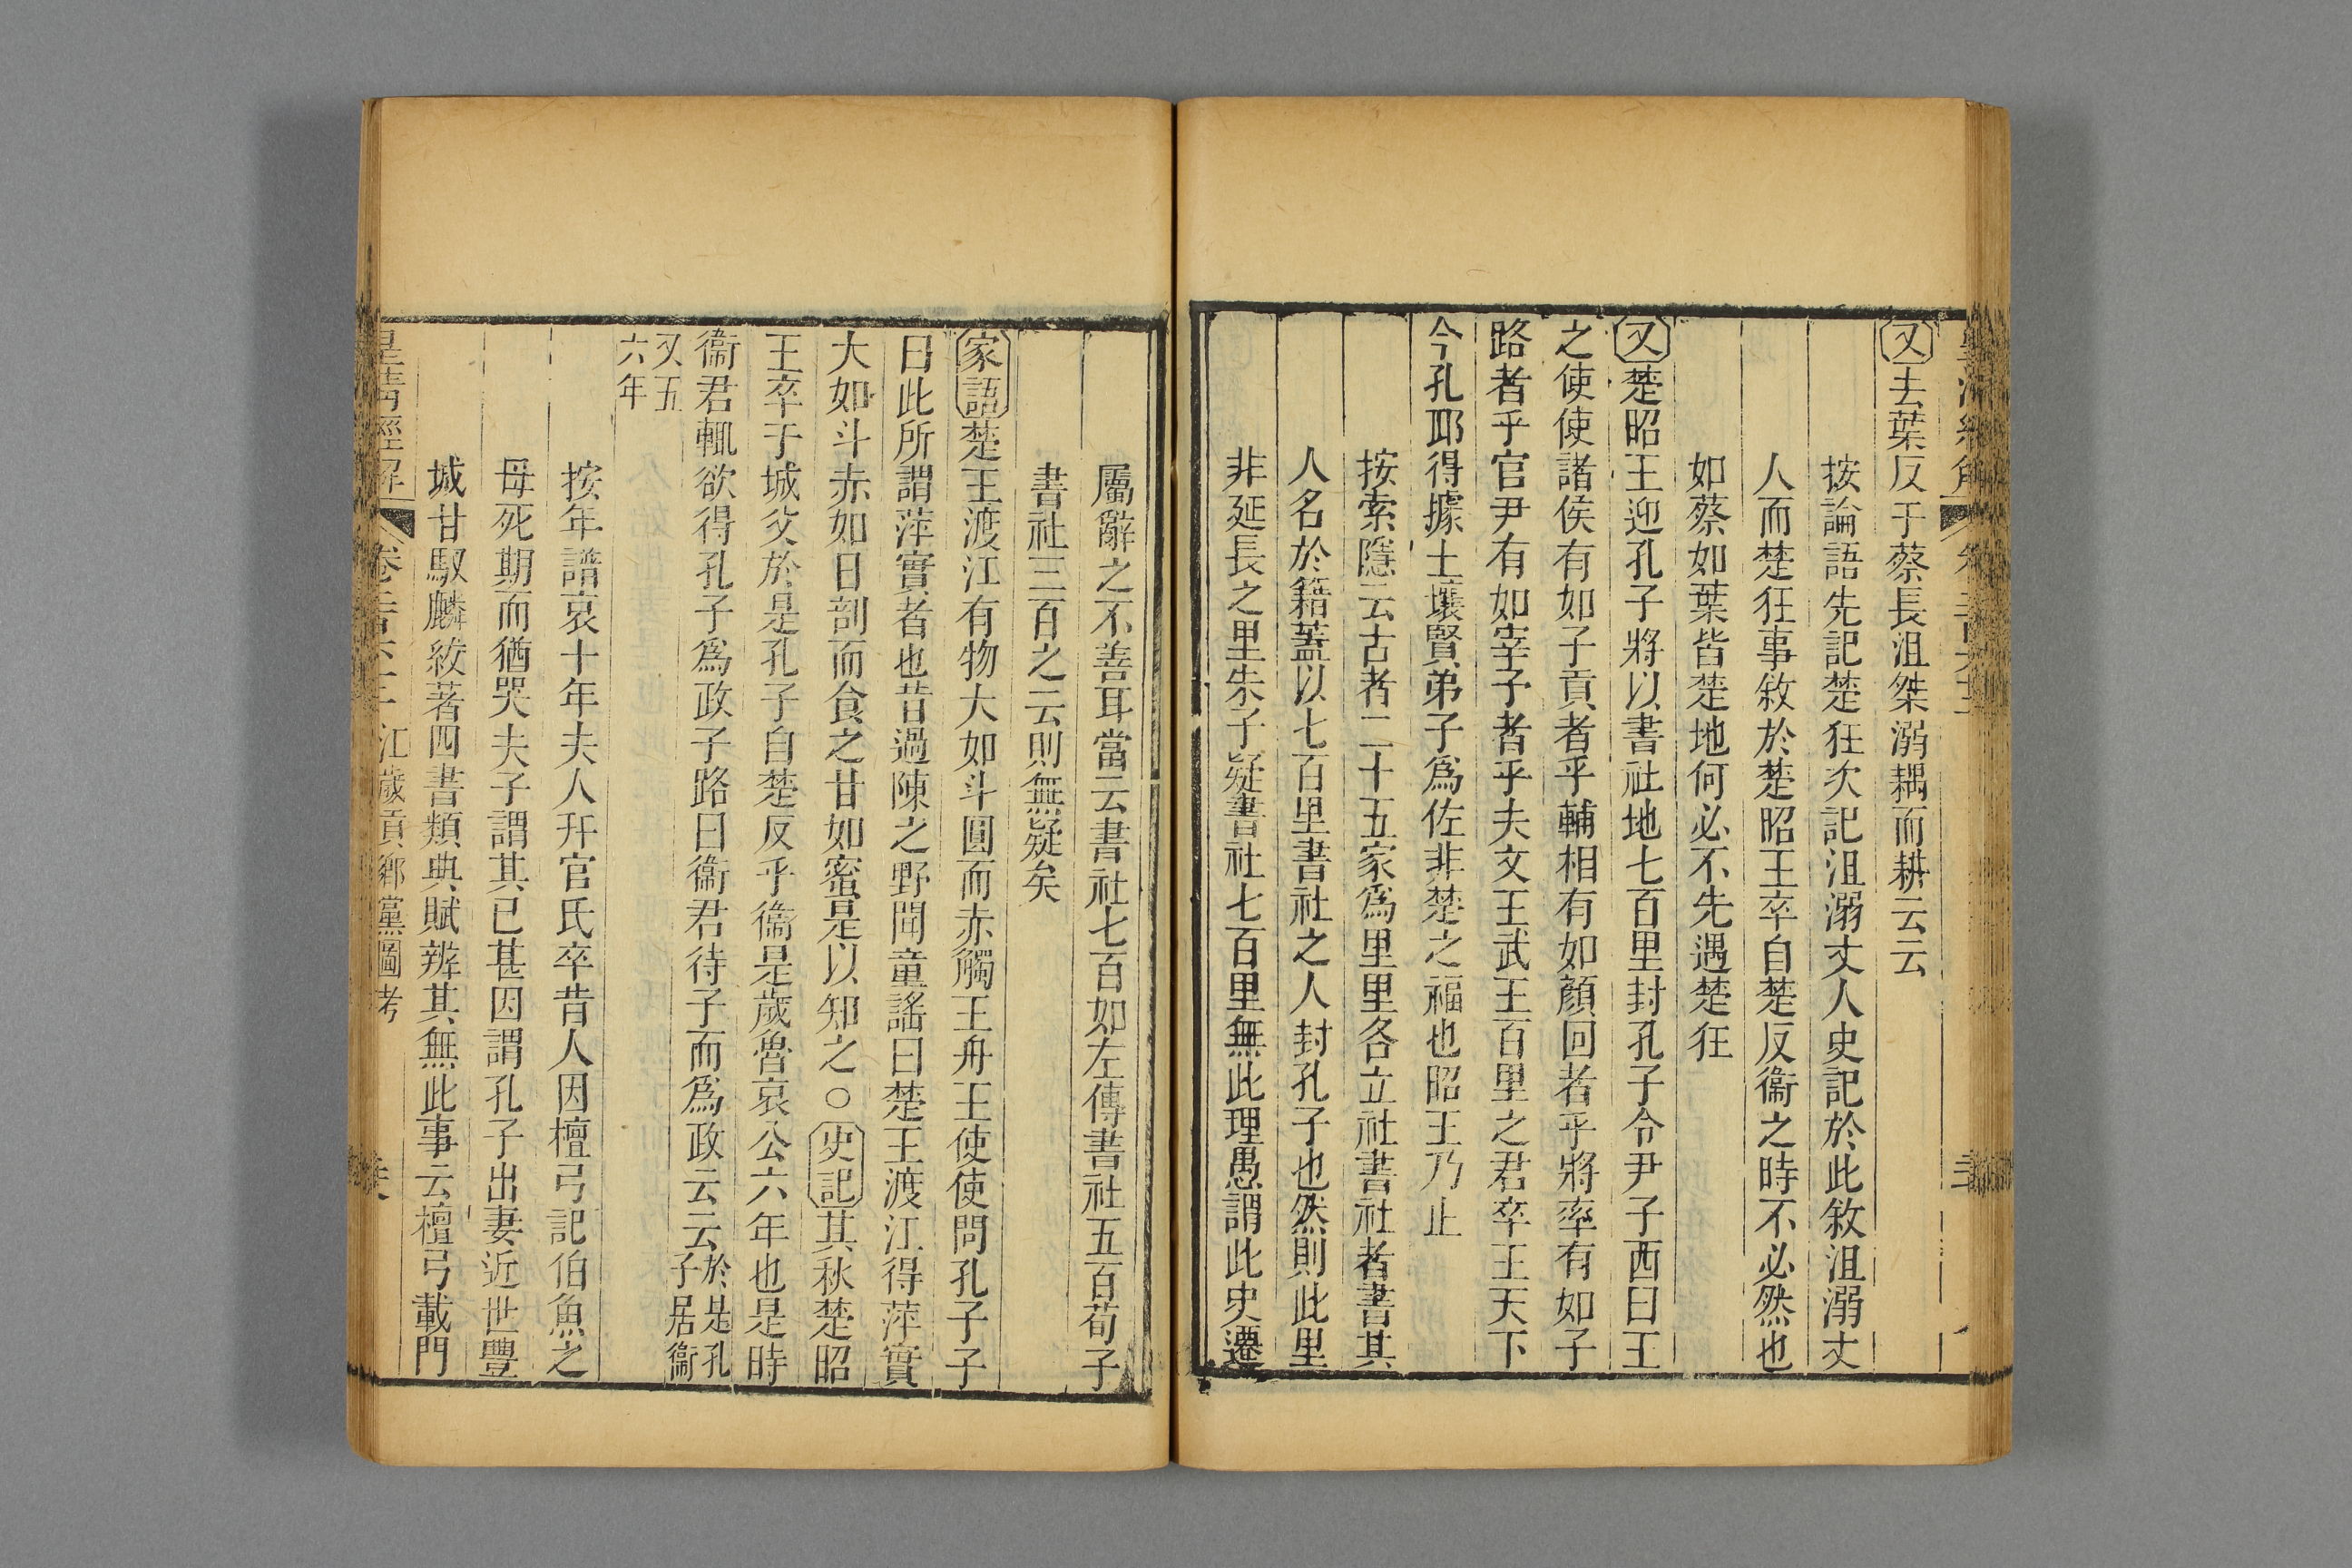 又去葉反于蔡長沮桀溺耦而耕云云
按論語先記楚狂次記沮溺丈人史記於此敘沮溺丈
人而楚狂事敘於楚昭王卒自楚反衞之時不必然也
如蔡如葉皆楚地何必不先遇楚狂
又楚昭王迎孔子將以書社地七百里封孔子令尹子西曰王
之使使諸侯有如子貢者乎輔相有如顔回者乎將率有如子
路者乎官尹有如宰予者乎夫文王武王百里之君卒王天下
今孔耶得據土壤賢弟子爲佐非楚之福也昭王乃止
按索隱云古者二十五家爲里里各立社書社者書其
人名於籍蓋以七百里書社之人封孔子也然則此里
非延長之里朱子疑書社七百里無此理愚謂此史遷
屬辭之不善耳當云書社七百如左傳書社五百荀子
書社三百之云則無疑矣
家語楚王渡江有物大如斗圓而赤觸王舟王使使問孔子子
曰此所謂萍實者也昔過陳之野聞童謠曰楚王渡江得萍實
大如斗赤如日剖而食之甘如蜜是以知之○史記其秋楚昭
王卒于城父於是孔子自楚反乎衞是歲魯哀公六年也是時
衞君輒欲得孔子爲政子路曰衞君待子而爲政云云於是孔
子居衞
又五
六年
按年譜哀十年夫人幵官氏卒昔人因檀弓記伯魚之
母死期而猶哭夫子謂其已甚因謂孔子出妻近世豐
城甘馭麟紱著四書類典賦辨其無此事云檀弓載門
皇清經解 卷二百六十一 江歲貢鄉黨圖考